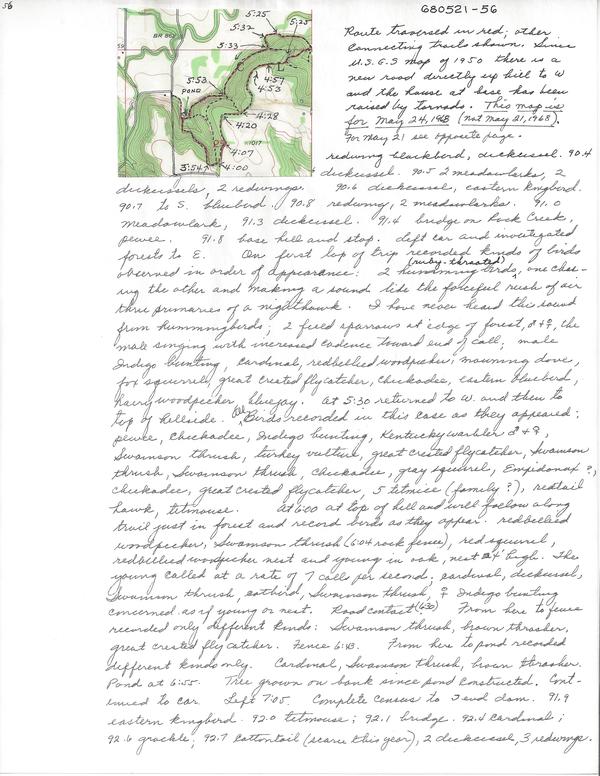 56
680521-56
5:25
5:25
5:32
BR 862
5:33
5:53
POND
4:57
4:53
4:28
4:20
4:07
3:54
4:00
Route traversed in red; other
connecting trails shown. Since
U.S.G.S map of 1950 there is a
new road directly up hill to W
and the house at base has been
raised by tornado. This map is
for May 24, 1968 (not May 21, 1968).
For May 21 see opposite page.
redwing blackbird, dickcissel. 90.4
dickcissel. 90.5 2 meadowlarks, 2
dickcissels, 2 redwings. 90.6 dickcissel, eastern kingbird.
90.7 to S. bluebird. 90.8 redwing, 2 meadowlarks. 91.0
meadowlark, 91.3 dickcissel. 91.4 bridge on Rock Creek,
pewee. 91.8 base hill and stop. Left car and investigated
forests to E. On first lap of trip recorded kinds of birds
observed in order of appearance: 2 hummingbirds (ruby-throated), one chas-
ing the other and making a sound like the forceful rush of air
thru primaries of a nighthawk. I have never heard this sound
from hummingbirds; 2 field sparrows at edge of forest, ♂ + ♀, the
male singing with increased cadence toward end of call; male
Indigo bunting, cardinal, redbellied woodpecker, mourning dove,
fox squirrel, great crested flycatcher, chickadee, eastern bluebird,
hairy woodpecker, bluejay. At 5:30 returned to W. and then to
top of hillside. All Birds recorded in this case as they appeared:
pewee, chickadee, Indigo bunting, Kentucky warbler ♂ + ♀,
Swainson thrush, turkey vulture, great crested flycatcher, Swainson
thrush, Swainson thrush, chickadee, gray squirrel, Empidonax ?,
chickadee, great crested flycatcher, 5 titmice (family?), redtail
hawk, titmouse. At 6:00 at top of hill and will follow along
trail just in forest and record birds as they appear. redbellied
woodpecker, Swainson thrush (6:04 rock fence), red squirrel,
redbellied woodpecker nest and young in oak, nest 4' high. The
young called at a rate of 7 calls per second; cardinal, dickcissel,
Swainson thrush, catbird, Swainson thrush, ♀ Indigo bunting
concerned as if young or nest. Road contact (630) From here to fence
recorded only different kinds: Swainson thrush, brown thrasher,
great crested flycatcher. Fence 6:43. From here to pond recorded
different kinds only. Cardinal, Swanson thrush, brown thrasher.
Pond at 6:55. Tree grown on bank since pond constructed. Cont-
inued to car. Left 7:05. Complete census to Tevol dam. 91.9
eastern kingbird. 92.0 titmouse; 92.1 bridge. 92.4 cardinal;
92.6 grackle; 92.7 cottontail (scarce this year), 2 dickcissel, 3 redwings.